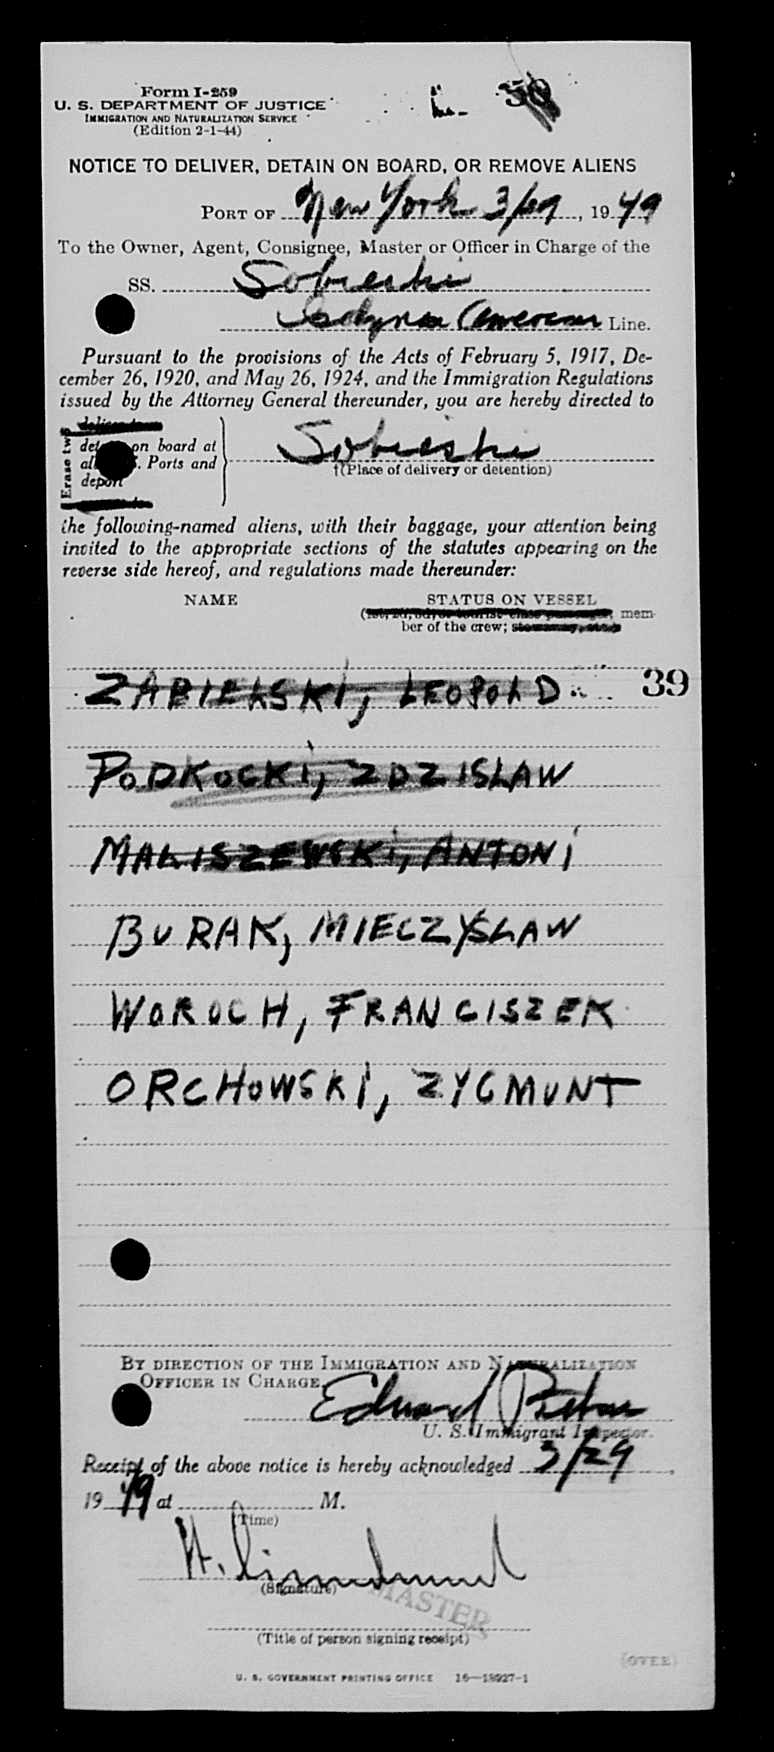 Form I-259
U. S. DEPARTMENT OF JUSTICE
IMMIGRATION AND NATURALIZATION SERVICE
(Edition 2-1-44)
NOTICE TO DELIVER, DETAIN ON BOARD, OR REMOVE ALIENS
PORT OF New York 3/29, 1949
To the Owner, Agent, Consignee, Master or Officer in Charge of the
SS. Sobieski
Gdynia American Line.
Pursuant to the provisions of the Acts of February 5, 1917, De-
cember 26, 1920, and May 26, 1924, and the Immigration Regulations
issued by the Attorney General thereunder, you are hereby directed to
Erase two
on board at
Ports and
deport
Sobieski
†(Place of delivery or detention)
the following-named aliens, with their baggage, your attention being
invited to the appropriate sections of the statutes appearing on the
reverse side hereof, and regulations made thereunder:
NAME STATUS ON VESSEL
mem-
ber of the crew;
ZABIELSKI, LEOPOLD 39
PODKOCKI, ZDZISLAW
MALISZEWSKI, ANTONI
BURAK, MIECZYSLAW
WOROCH, FRANCISZEK
ORCHOWSKI, ZYGMUNT
BY DIRECTION OF THE IMMIGRATION AND NATURALIZATION
OFFICER IN CHARGE
Edward
U. S. Immigrant Inspector.
Receipt of the above notice is hereby acknowledged 3/29,
1949 at M.
(Time)
(Signature)
MASTER
(Title of person signing receipt)
(OVER)
U. S. GOVERNMENT PRINTING OFFICE 16—18927-1